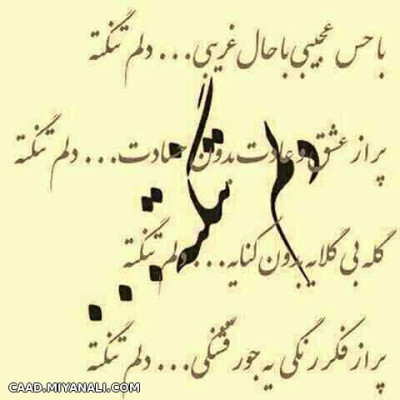 با حس عجیبی با حال غریبی... دلم تنگته
پر از عشق و عادت بدون حسادت... دلم تنگته
دلم تنگته...
گله بی گلایه بدون کنایه... دلم تنگته
پر از فکر رنگی یه جور قشنگی... دلم تنگته
CAAD.MIYANALI.COM